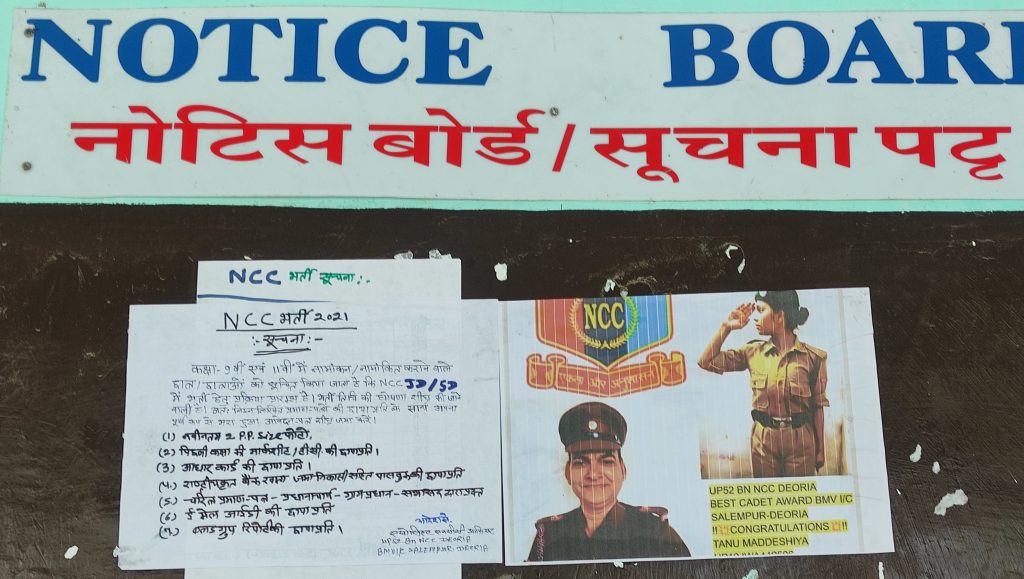 NOTICE BOARD
नोटिस बोर्ड/सूचना पट्ट
NCC भर्ती सूचना:-
NCC भर्ती 2021
:- सूचना:-
कक्षा-9वीं एवं 11वीं में नामांकन/नामांकित कराने वाले
छात्र/छात्राओं को सूचित किया जाता है कि NCC JD/SD
में भर्ती हेतु प्रक्रिया प्रारम्भ है। भर्ती तिथी की घोषणा शीघ्र की जाने
वाली है। अतः निम्नलिखित प्रमाण-पत्रों की छायाप्रति के साथ अपना
शीघ्र जमा करें।
(1) नवीनतम 2 P.P. Size फोटो,
(2) पिछली कक्षा की मार्कशीट/टीसी की छायाप्रति
(3) आधार कार्ड की छायाप्रति।
(4) राष्ट्रीयकृत बैंक रकम जमा निकासी सहित पासबुक की छायाप्रति
(5) चरित्र प्रमाण-पत्र - प्रधानाचार्य - ग्रामप्रधान - सभासद द्वारा प्रदत्त
(6) ई मेल आईडी की छायाप्रति
(7) ब्लड ग्रुप रिपोर्ट की छायाप्रति।
UP52 BN NCC DEORIA
BMVIC SALEMPUR DEORIA
NCC
एकता और अनुशासन
UP52 BN NCC DEORIA
BEST CADET AWARD BMV I/C
SALEMPUR-DEORIA
!!💥CONGRATULATIONS💥!!
TANU MADDESHIYA